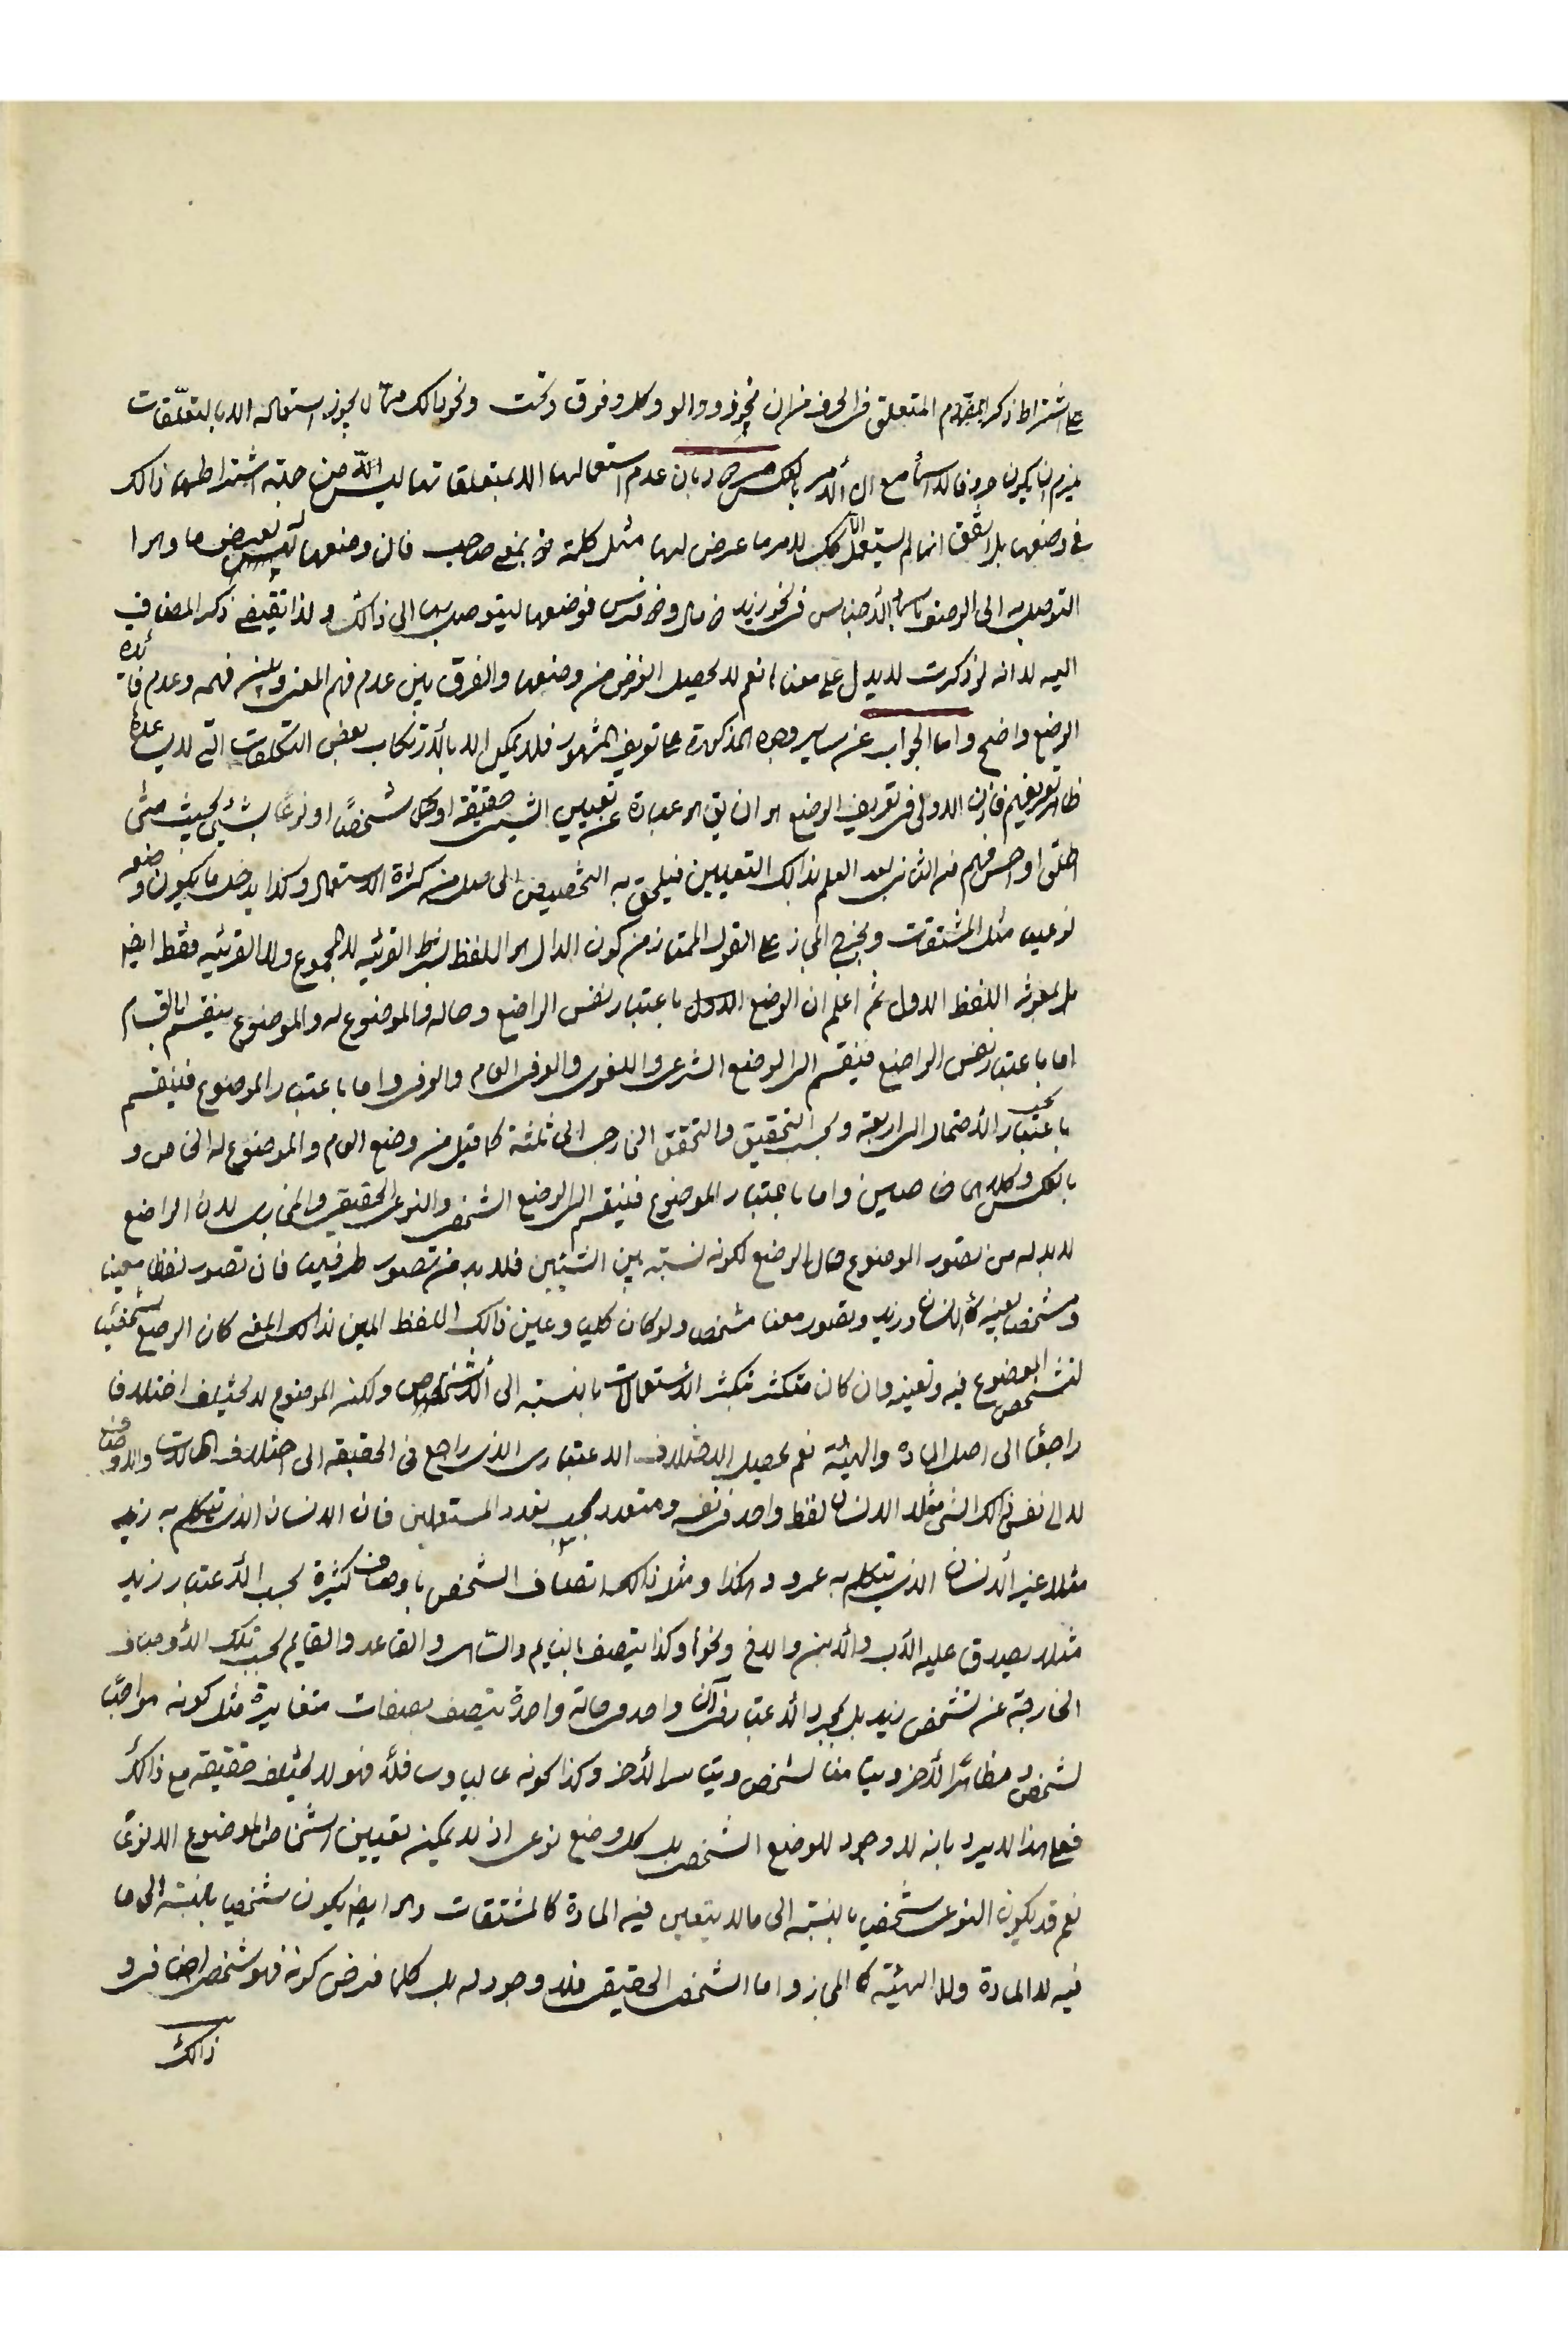 على اشتراط ذكر المتعلق في الحرف من ان نحو ذو والو وكل وفوق وتحت ونحو ذالك مما لا يجوز استعماله الا بالمتعلقات
يلزم ان يكون حروفا لا اسما مع ان الأمر بالعكس مردود بان عدم استعمالها الا بمتعلقاتها ليس من جهة اشتراطها ذالك
في وضعها بل اتفق انها لم يستعمل الا كك لامر ما عرض لها مثل كلمة ذو بمعنى صاحب فان وضعها لغرض ما وهو
التوصل به الى الوصف باسماء الأجناس في نحو زيد ذو مال وذو فرس فوضعها ليتوصل بها الى ذالك ولذا يقتضي ذكر المضاف
اليه لا انه لو ذكرت لا يدل على معناه نعم لا يحصل الغرض من وضعها والفرق بين عدم فهم المعنى وبين فهمه وعدم فائدة
الوضع واضح واما الجواب عن ساير وجوه المذكورة على تعريف المشهور فلا يمكن الا بالارتكاب بعض التكلفات التي لا يساعده
ظاهر تعريفهم فاذن الاولى في تعريف الوضع هو ان يق هو عبارة عن تعيين الشيء حقيقة او حكما شخصًا او نوعًا بشيء بحيث متى
اطلق او احس فهم منه الثاني بعد العلم بذالك التعيين فيلحق به التخصيص الحاصل من كثرة الاستعمال وكذا يدخل ما يكون وضعه
نوعيا مثل المشتقات ويخرج المجاز على القول الممتاز من كون الدال هو اللفظ بشرط القرينة لا المجموع ولا القرينة فقط ايضا
بمعونة اللفظ الاول ثم اعلم ان الوضع باعتبار نفس الواضع وحاله والموضوع له والموضوع ينقسم باقسام
اما باعتبار نفس الواضع فينقسم الى الوضع الشرعي واللغوي والعرفي العام والعرفي واما باعتبار الموضوع فينقسم
باعتبار الأحتمال الى اربعة وبحسب التحقيق والتحقق الخارجي الى ثلثة كما قيل من وضع العام والموضوع له الخاص و
بالعكس وكلاهما خاصين واما باعتبار الموضوع فينقسم الى الوضع الشخصي والنوعي الحقيقي والمجازي لان الواضع
لا بد له من تصور الموضوع حال الوضع لكونه نسبة بين الشيئين فلا بد من تصور طرفيها فان تصور لفظا معينا
ومشخصا بعينه كالانسان وزيد وتصور معنا مشخص ولو كان كليا وعين ذالك اللفظ المعين لذالك المعنى كان الوضع شخصيا
لتشخص الموضوع فيه وتعينه وان كان متكثر بتكثر الأستعمالات بالنسبة الى الأشخاص ولكنه الموضوع لا يختلف اختلافا
راجعًا الى اصل المادة والهيئة نعم يحصل الاختلاف الاعتباري الذي راجع في الحقيقة الى اختلاف الحالات والاوصاف
لا الى نفس ذالك الشيء مثلا الانسان لفظ واحد في نفسه ومتعدد بحسب تعدد المستعملين فان الانسان الذي يتكلم به زيد
مثلا غير الأنسان الذي يتكلم به عمرو وهكذا ومثل ذالك اتصاف الشخص باوصاف كثيرة بحسب الأعتبار زيد
مثلا يصدق عليه الأب والأبن والاخ ونحوها وكذا يتصف بالنايم والساهر والقاعد والقايم بحسب تلك الأوصاف
الخارجة عن تشخص زيد بل بمجرد الأعتبار في آن واحد وحالة واحدة يتصف بصفات متغايرة مثل كونه مواجهًا
لشخص ومظاهرًا لأخر وتيامنا لشخص وتياسرا لأخر وكذا كونه عاليا وسافلًا فهو لا يختلف حقيقته مع ذالك
فعلى هذا لا يرد بانه لا وجود للوضع الشخصي بل كل وضع نوعي اذ لا يمكن تعيين اشخاص الموضوع الا نوعًا
نعم قد يكون النوعي شخصي بالنسبة الى ما لا يتعين فيه المادة كالمشتقات وهو ايضا يكون شخصيا بالنسبة الى ما
فيه لا المادة ولا الهيئة كالمجاز واما الشخصي الحقيقي فلا وجود له بل كلما فرض كونه فهو شخصي اضافي و
ذالك